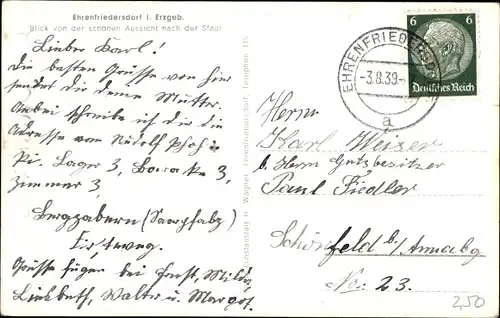 Ehrenfriedersdorf i. Erzgeb.
Blick von der schönen Aussicht nach der Stadt
Lieber Karl!
Die besten Grüsse von hier
sendet dir deine Mutter.
Anbei schreibe ich dir die
Adresse von Rudolf
Pi. Lager 3, Baracke 3,
Zimmer 3,
Bergzabern (Saarpfalz)
Grüsse fügen bei Ernst, Milda,
Liesbeth, Walter u. Margot.
Kunstanstalt H. Wagner, Ehrenfriedersdorf, Telephon 315
EHRENFRIEDERSD
-3.8.39-
a
6 6
Deutsches Reich
Herrn
Karl Weiser
b. Herrn Gutsbesitzer
Paul Fiedler
Schönfeld b/ Annabg
No. 23.
250